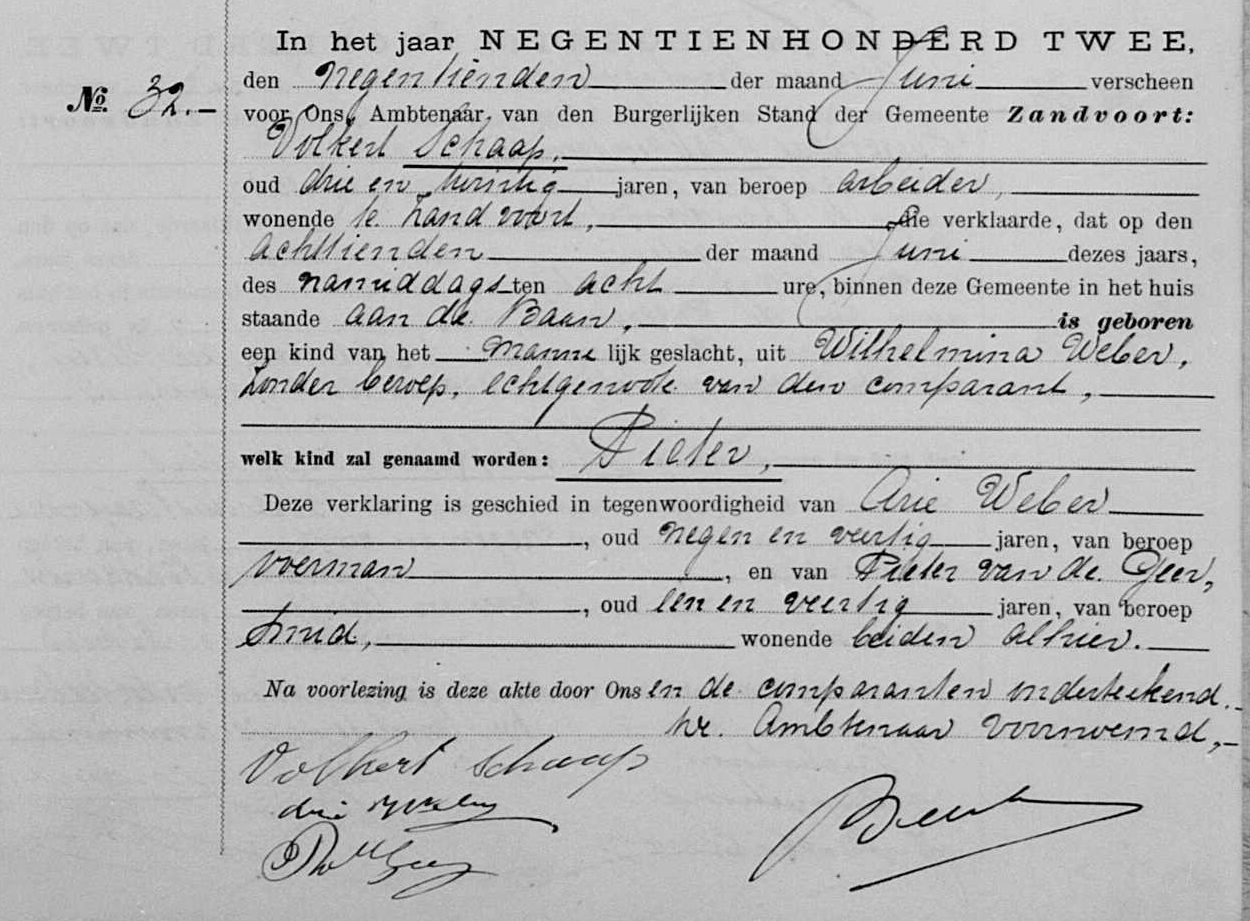 In het jaar NEGENTIENHONDERD TWEE,
den negentienden der maand Juni verscheen
No. 32.-
voor Ons, Ambtenaar van den Burgerlijken Stand der Gemeente Zandvoort:
Volkert Schaap,
oud drie en twintig jaren, van beroep arbeider,
wonende te Zandvoort, die verklaarde, dat op den
achttienden der maand Juni dezes jaars,
des namiddags ten acht ure, binnen deze Gemeente in het huis
staande aan de Baan, is geboren
een kind van het manne lijk geslacht, uit Wilhelmina Weber,
zonder beroep, echtgenoote van den comparant,
welk kind zal genaamd worden: Pieter,
Deze verklaring is geschied in tegenwoordigheid van Arie Weber
, oud negen en veertig jaren, van beroep
voerman, en van Pieter van de Geer,
, oud een en veertig jaren, van beroep
smid, wonende beiden alhier.
Na voorlezing is deze akte door Ons en de comparanten onderteekend.-
De Ambtenaar voornoemd,-
Volkert Schaap